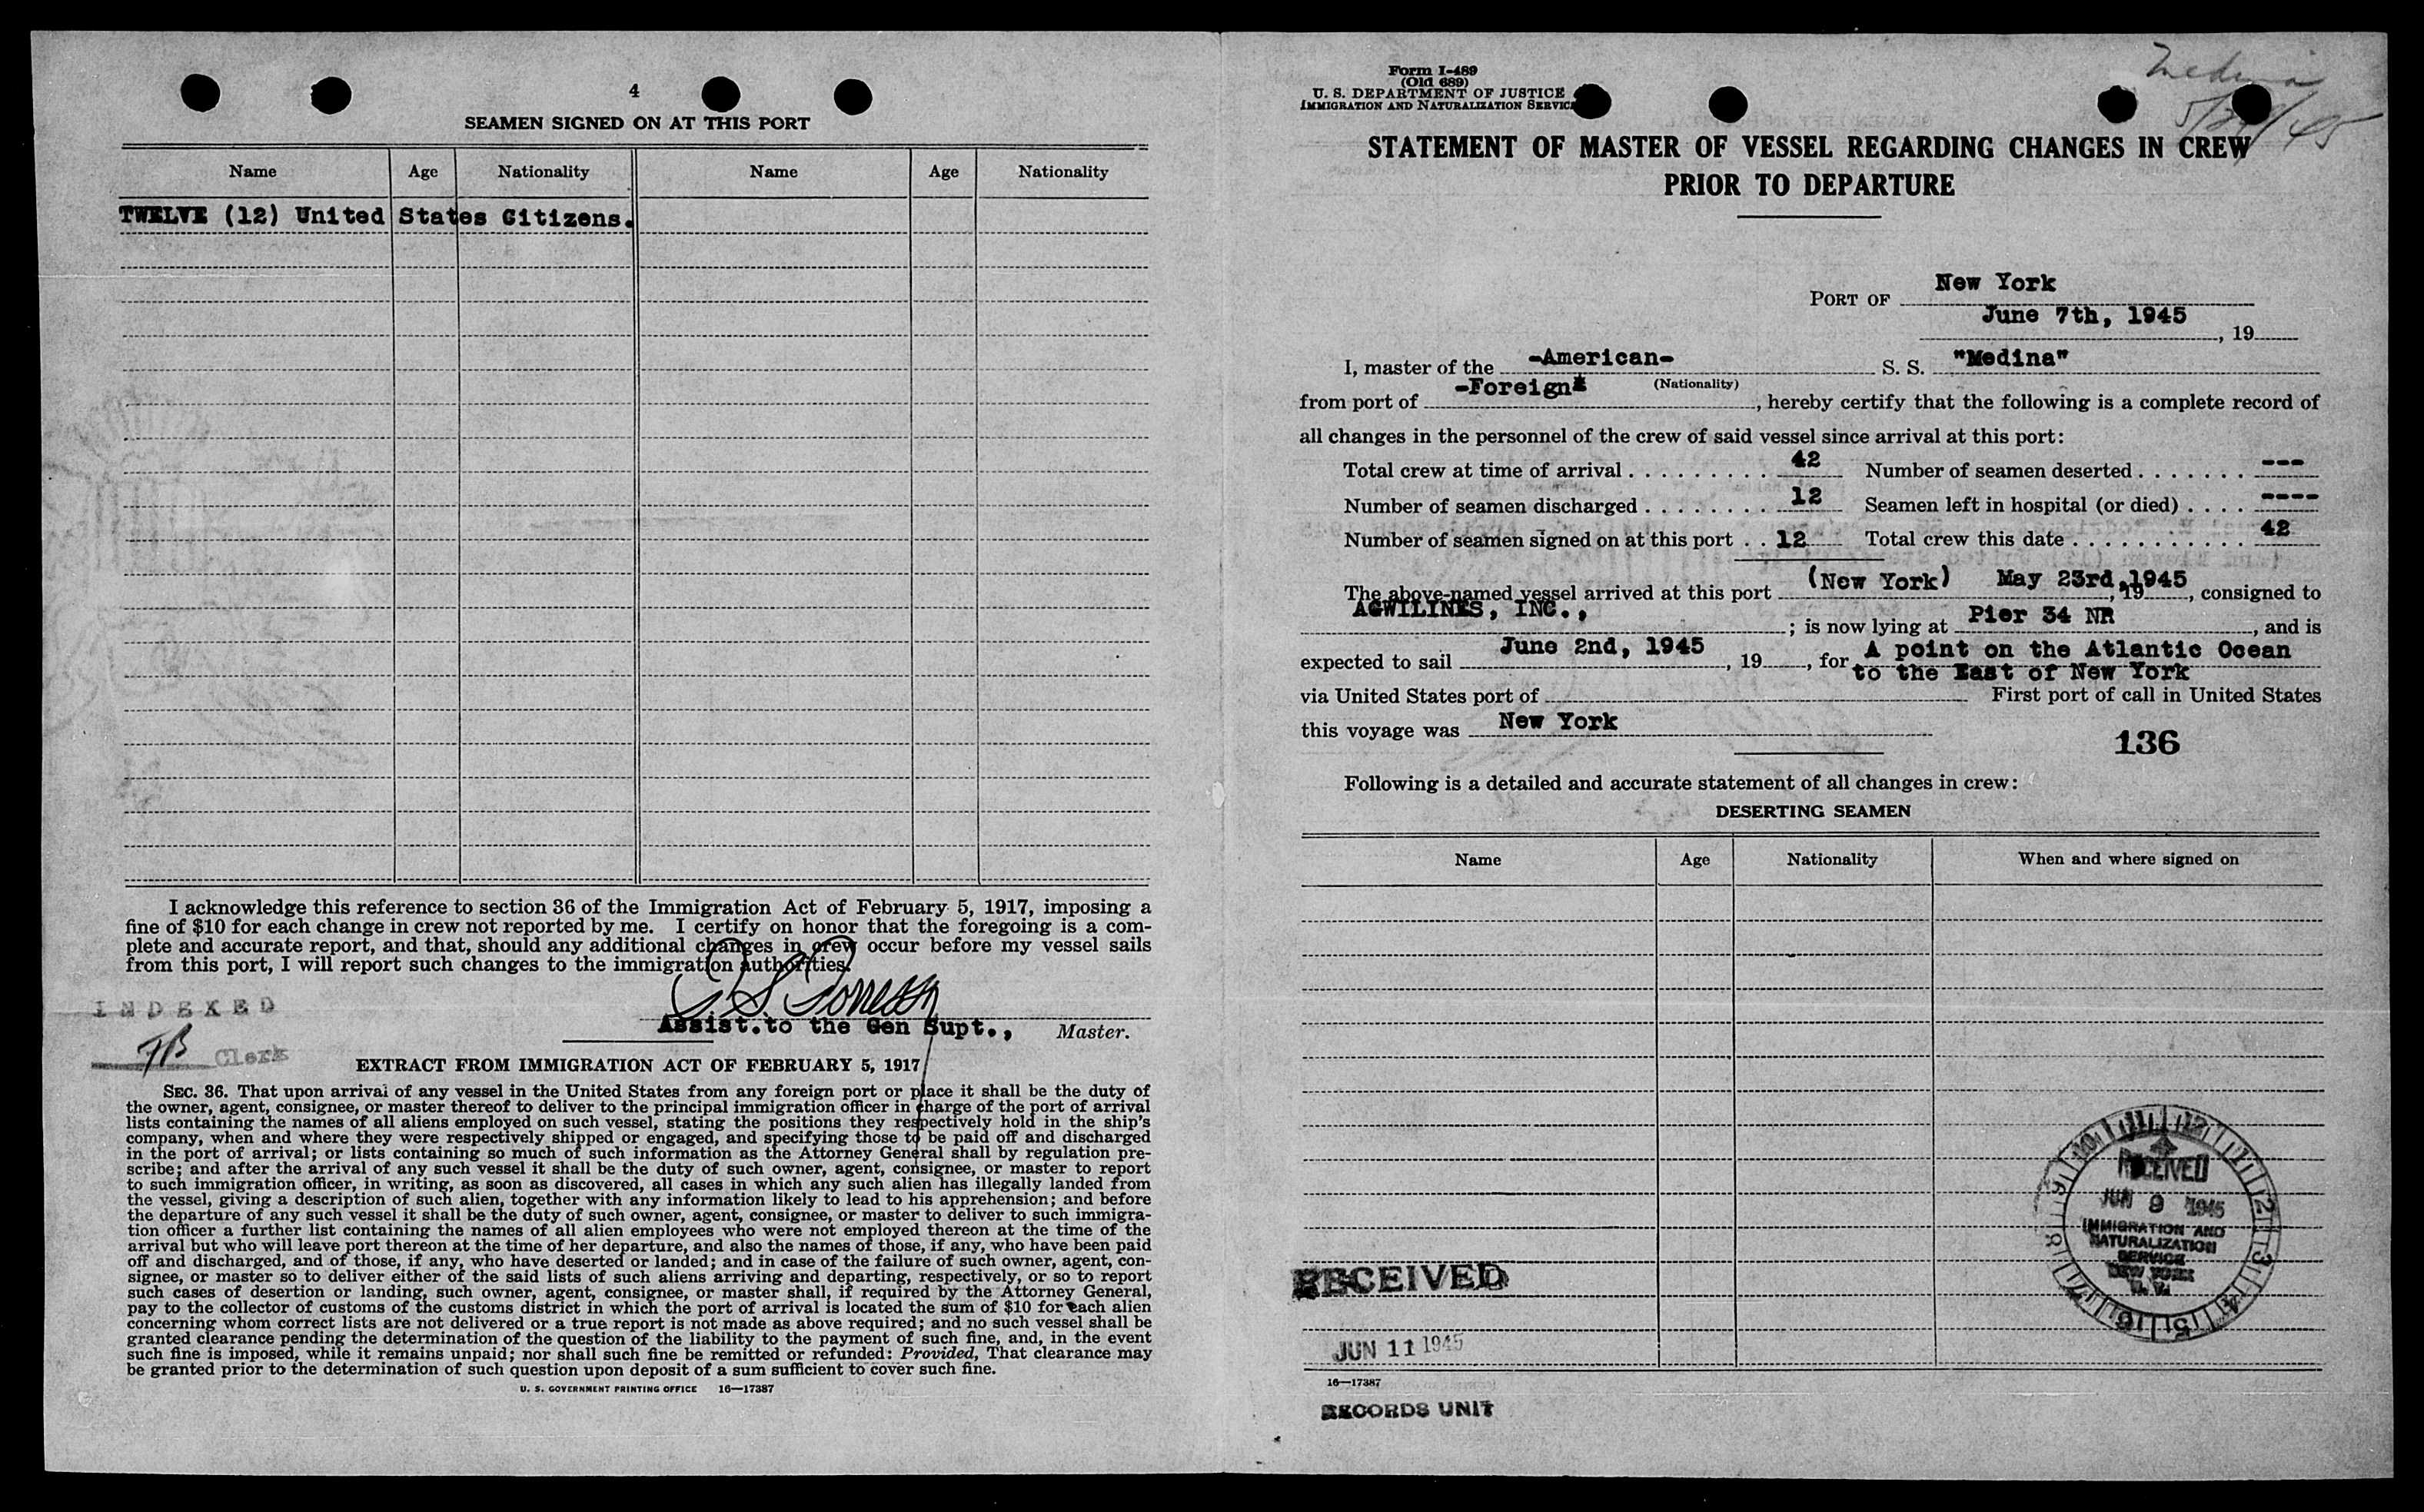 4
SEAMEN SIGNED ON AT THIS PORT
Name Age Nationality Name Age Nationality
TWELVE (12) United States Citizens.
I acknowledge this reference to section 36 of the Immigration Act of February 5, 1917, imposing a
fine of $10 for each change in crew not reported by me. I certify on honor that the foregoing is a com-
plete and accurate report, and that, should any additional changes in crew occur before my vessel sails
from this port, I will report such changes to the immigration authorities.
INDEXED
Assist.to the Gen Supt., Master.
Clerk
EXTRACT FROM IMMIGRATION ACT OF FEBRUARY 5, 1917
SEC. 36. That upon arrival of any vessel in the United States from any foreign port or place it shall be the duty of
the owner, agent, consignee, or master thereof to deliver to the principal immigration officer in charge of the port of arrival
lists containing the names of all aliens employed on such vessel, stating the positions they respectively hold in the ship's
company, when and where they were respectively shipped or engaged, and specifying those to be paid off and discharged
in the port of arrival; or lists containing so much of such information as the Attorney General shall by regulation pre-
scribe; and after the arrival of any such vessel it shall be the duty of such owner, agent, consignee, or master to report
to such immigration officer, in writing, as soon as discovered, all cases in which any such alien has illegally landed from
the vessel, giving a description of such alien, together with any information likely to lead to his apprehension; and before
the departure of any such vessel it shall be the duty of such owner, agent, consignee, or master to deliver to such immigra-
tion officer a further list containing the names of all alien employees who were not employed thereon at the time of the
arrival but who will leave port thereon at the time of her departure, and also the names of those, if any, who have been paid
off and discharged, and of those, if any, who have deserted or landed; and in case of the failure of such owner, agent, con-
signee, or master so to deliver either of the said lists of such aliens arriving and departing, respectively, or so to report
such cases of desertion or landing, such owner, agent, consignee, or master shall, if required by the Attorney General,
pay to the collector of customs of the customs district in which the port of arrival is located the sum of $10 for each alien
concerning whom correct lists are not delivered or a true report is not made as above required; and no such vessel shall be
granted clearance pending the determination of the question of the liability to the payment of such fine, and, in the event
such fine is imposed, while it remains unpaid; nor shall such fine be remitted or refunded: Provided, That clearance may
be granted prior to the determination of such question upon deposit of a sum sufficient to cover such fine.
U. S. GOVERNMENT PRINTING OFFICE 16—17387
Form I-489
(Old 689)
U. S. DEPARTMENT OF JUSTICE
IMMIGRATION AND NATURALIZATION SERVICE
Medina
STATEMENT OF MASTER OF VESSEL REGARDING CHANGES IN CREW
PRIOR TO DEPARTURE
PORT OF New York
June 7th, 1945, 19
I, master of the -American- S. S. "Medina"
(Nationality)
from port of -Foreign*, hereby certify that the following is a complete record of
all changes in the personnel of the crew of said vessel since arrival at this port:
Total crew at time of arrival . . . . . . . . . 42 Number of seamen deserted . . . . . . . ---
Number of seamen discharged . . . . . . . . 12 Seamen left in hospital (or died) . . . . ----
Number of seamen signed on at this port . . 12 Total crew this date . . . . . . . . . . . 42
The above-named vessel arrived at this port (New York) May 23rd,1945, 19, consigned to
AGWILINES, INC., ; is now lying at Pier 34 NR, and is
expected to sail June 2nd, 1945, 19, for A point on the Atlantic Ocean
to the East of New York
via United States port of First port of call in United States
this voyage was New York
136
Following is a detailed and accurate statement of all changes in crew:
DESERTING SEAMEN
Name Age Nationality When and where signed on
RECEIVED
JUN 9 1945
IMMIGRATION AND
NATURALIZATION
SERVICE
NEW YORK
N. Y.
RECEIVED
JUN 11 1945
16—17387
RECORDS UNIT